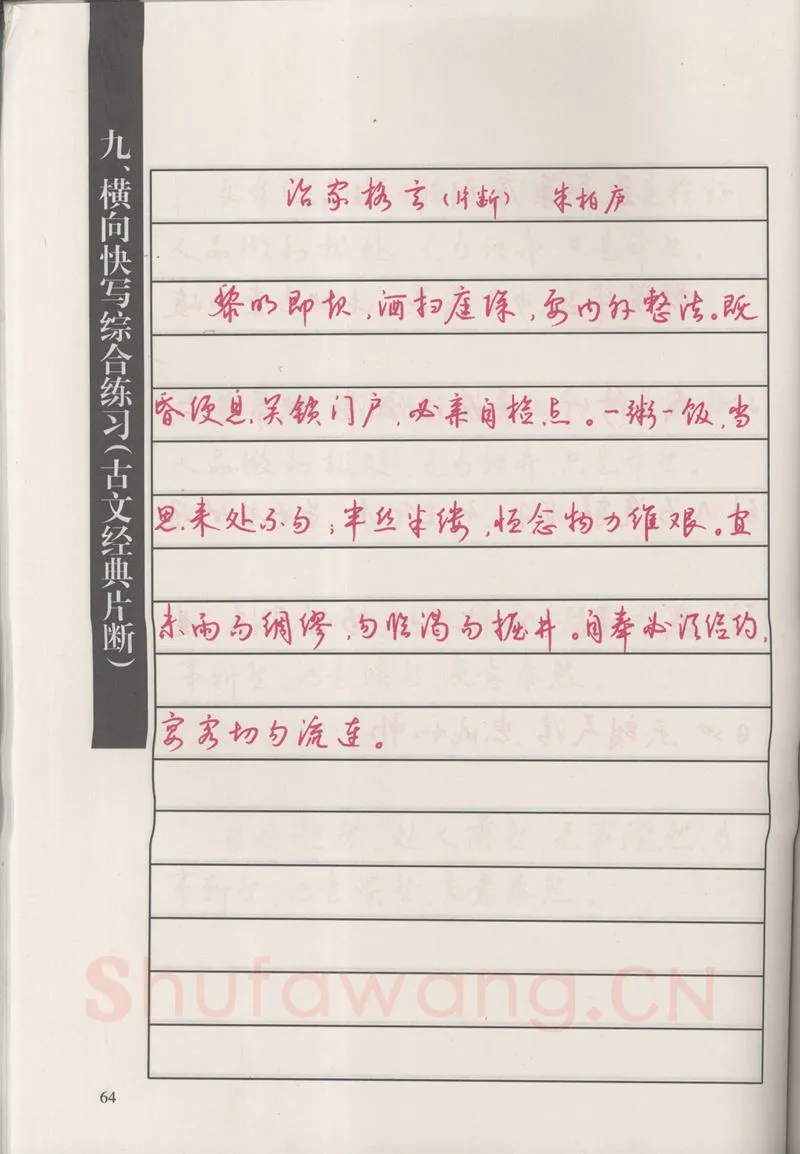 九、横向快写综合练习(古文经典片断)
治家格言(片断) 朱柏庐
黎明即起,洒扫庭除,要内外整洁。既
昏便息,关锁门户,必亲自检点。一粥一饭,当
思来处不易;半丝半缕,恒念物力维艰。宜
未雨而绸缪,勿临渴而掘井。自奉必须俭约,
宴客切勿流连。
Shufawang.CN
64